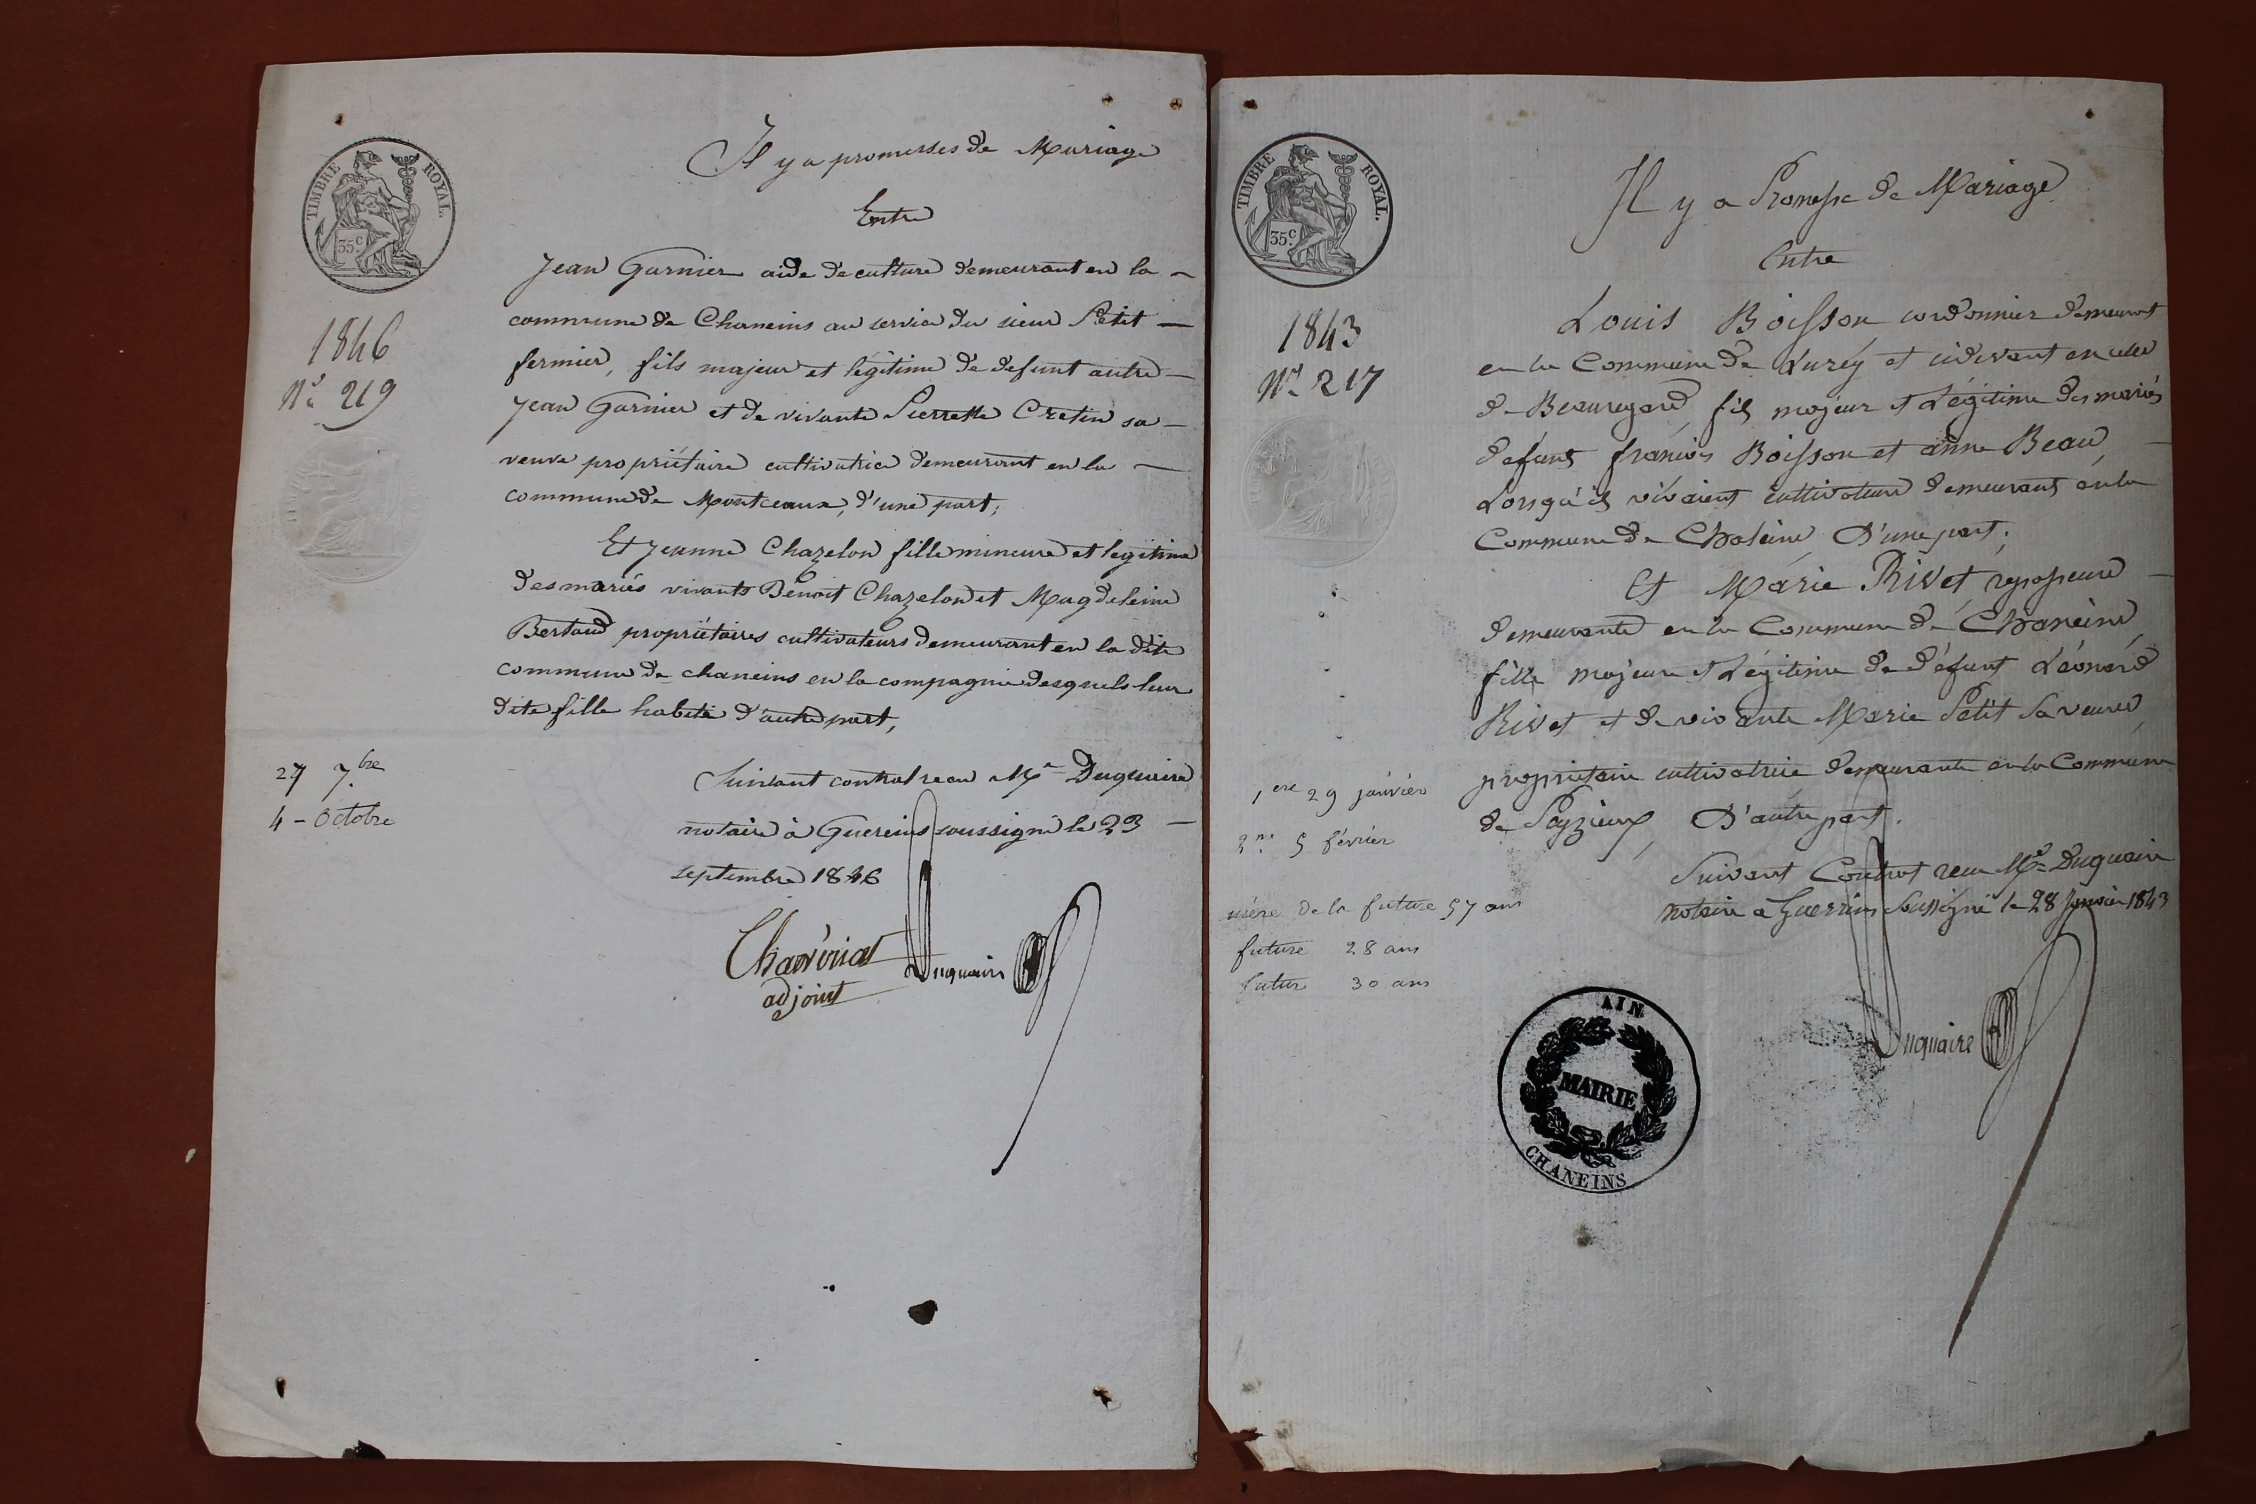 TIMBRE ROYAL.
35c
1846
No 219
27 7bre
4 - Octobre
Il y a promesses de Mariage
Entre
Jean Garnier aide de culture demeurant en la -
commune de Chaneins au service du sieur Petit -
fermier, fils majeur et légitime de defunt autre -
Jean Garnier et de vivante Pierrette Cretin sa -
veuve propriétaire cultivatrice demeurant en la -
commune de Montceaux, d'une part,
Et Jeanne Chazelon fille mineure et legitime
des mariés vivants Benoit Chazelon et Magdeleine
Bertaud propriétaires cultivateurs demeurant en la dite
commune de chaneins en la compagnie desquels leur
dite fille habite d'autre part,
Suivant contrat recu Me Duquaire
notaire à Guereins soussigné le 23 -
septembre 1846
adjoint
Duquaire
TIMBRE ROYAL.
35c
1843
No 217
1ere 29 janvier
2me 5 février
mère de la future 57 ans
future 28 ans
futur 30 ans
Il y a Promesse de Mariage
Entre
Louis Boisson cordonnier demeurant
en la Commune de Lurcy et cidevant en celle
de Beauregard, fils majeur et Légitime des mariés
defunts francois Boisson et anne Beau, -
Lorsqu'ils vivaient cultivateurs demeurants en la
Commune de Chaleins, D'une part;
Et Marie Rivet repasseuse -
demeurante en la Commune de Chaneins
fille majeure et Légitime de défunt Léonard
Rivet et de vivante Marie Petit sa veuve,
propriétaire cultivatrice demeurante en la Commune
de Peyzieux, D'autre part.
Suivant Contrat recu Me Duquaire
notaire a Guereins soussigné le 28 Janvier 1843
Duquaire
AIN
MAIRIE
CHANEINS